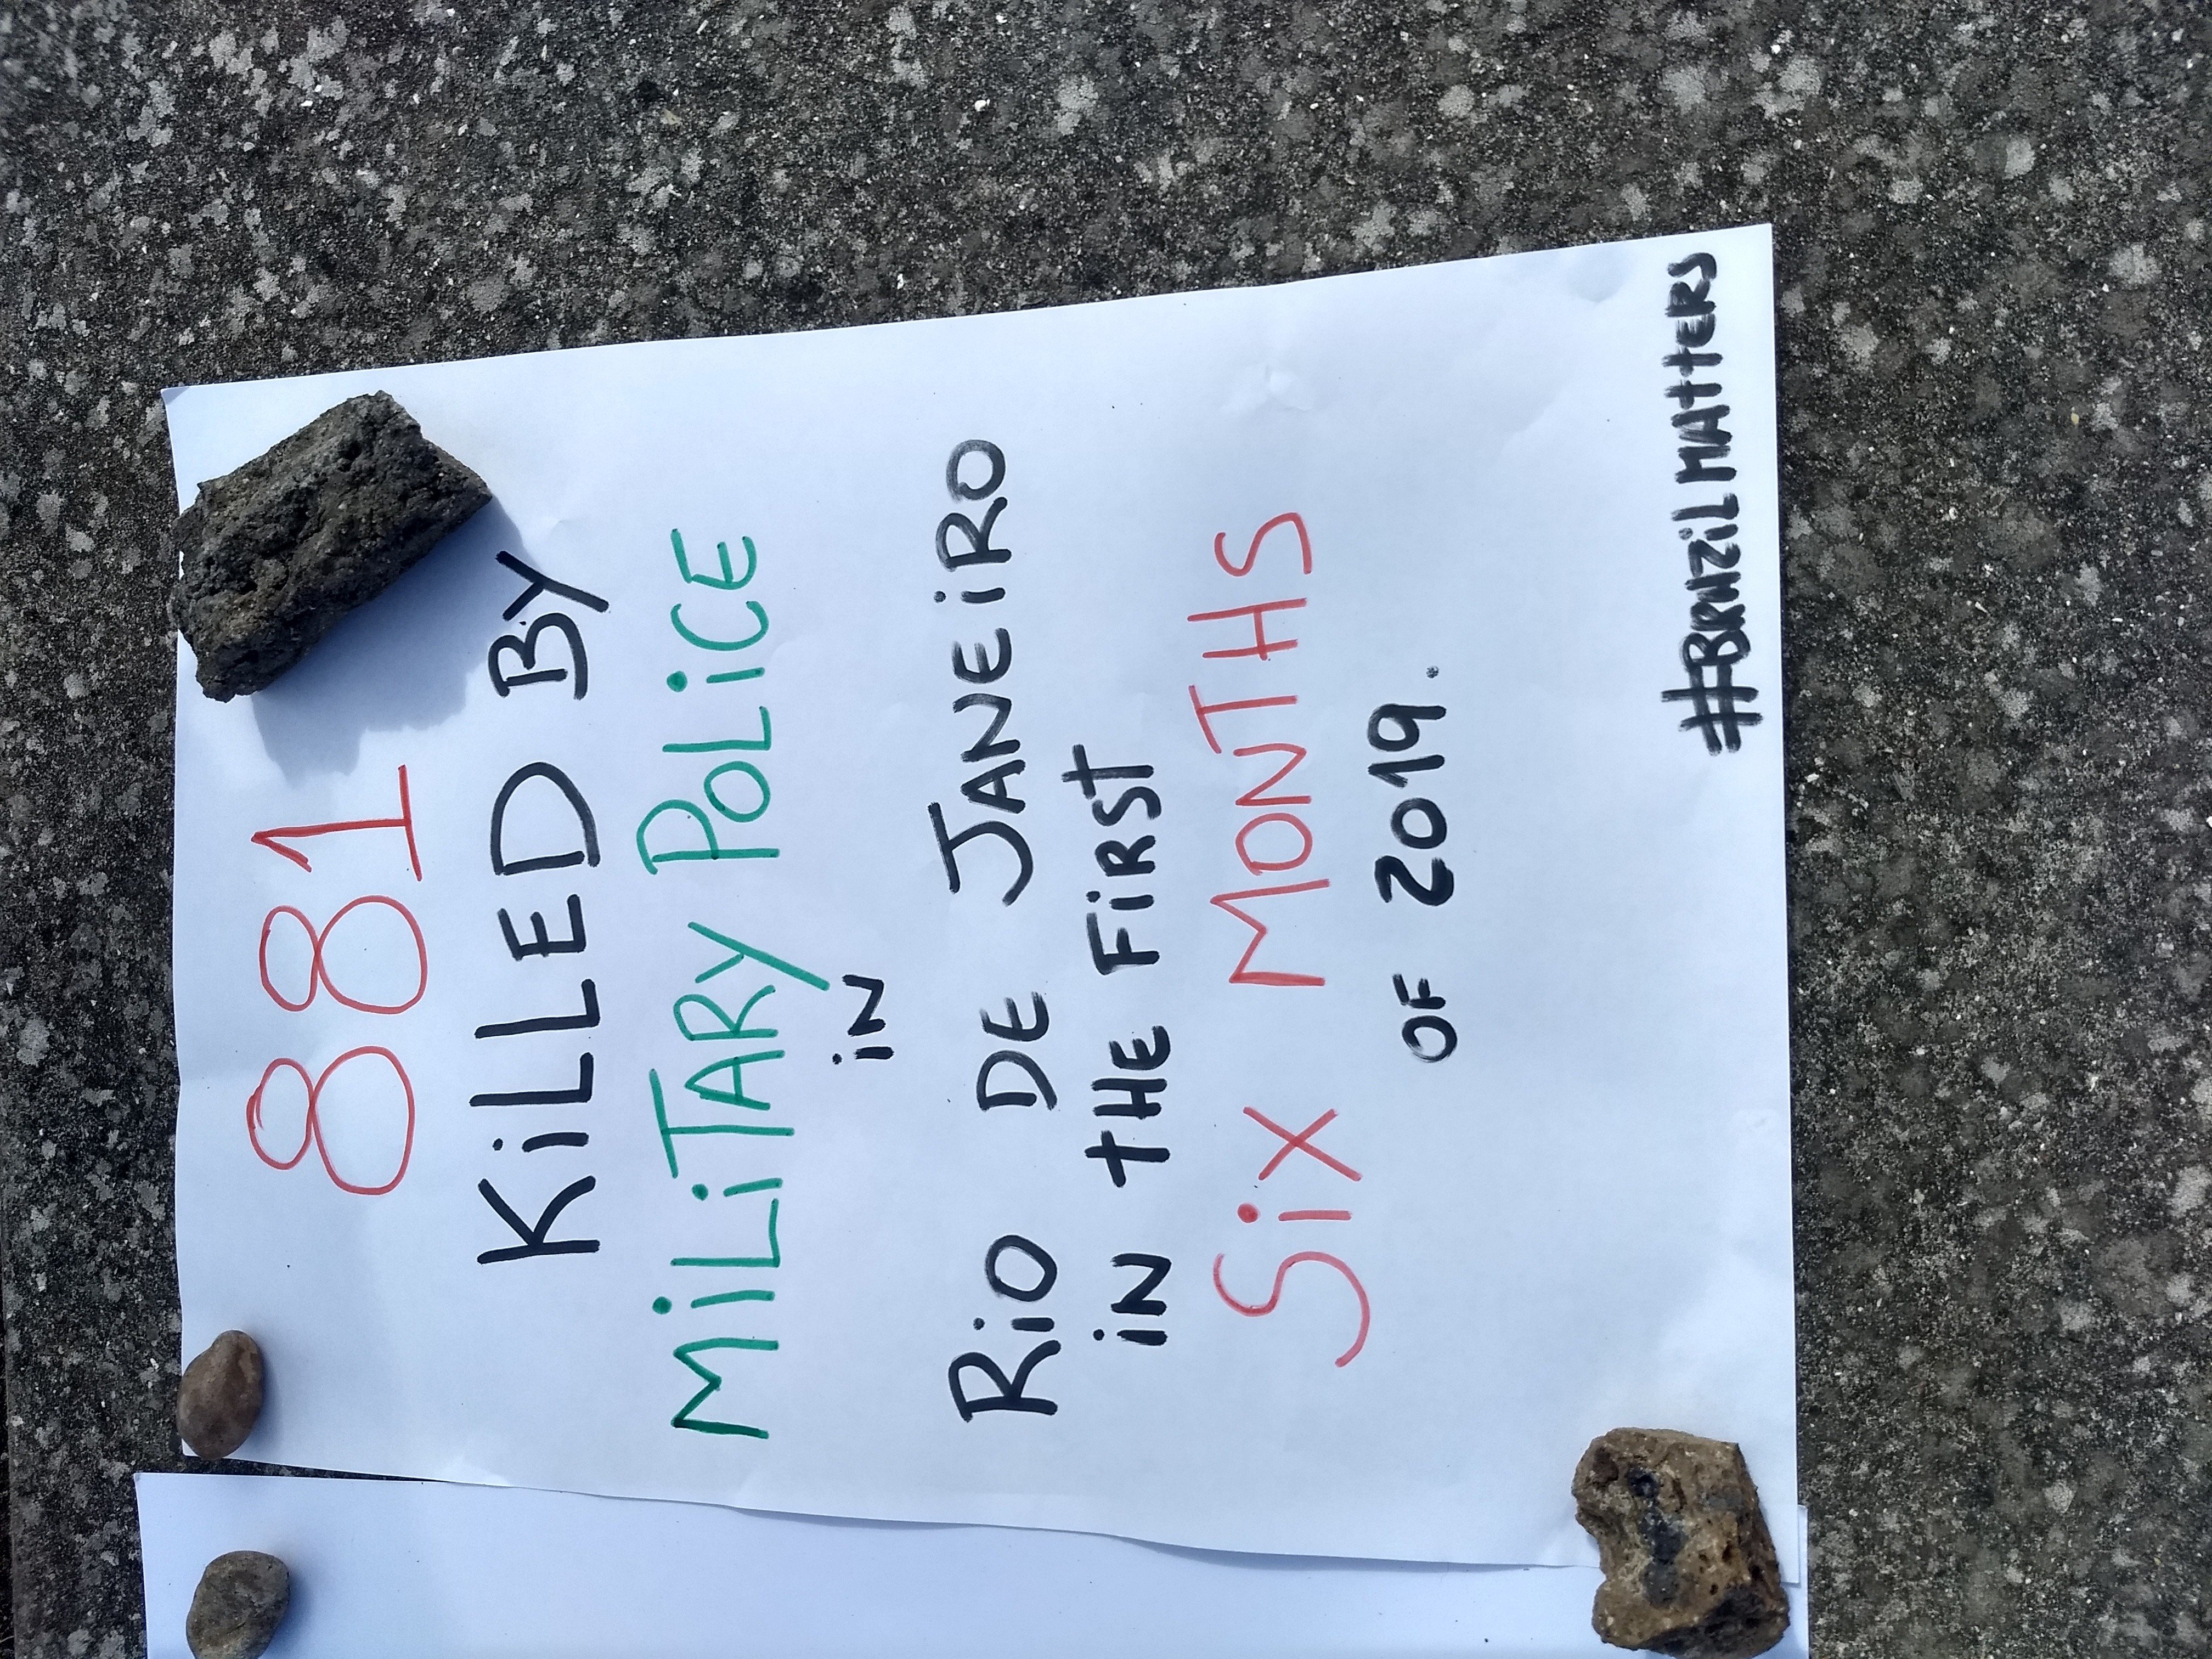 881
KiLLED BY
MiLiTARY PoLiCE
iN
RiO DE JANEiRO
iN tHE FiRSt
Six MONTHS
OF 2019.
#BRAZiLMAttERS